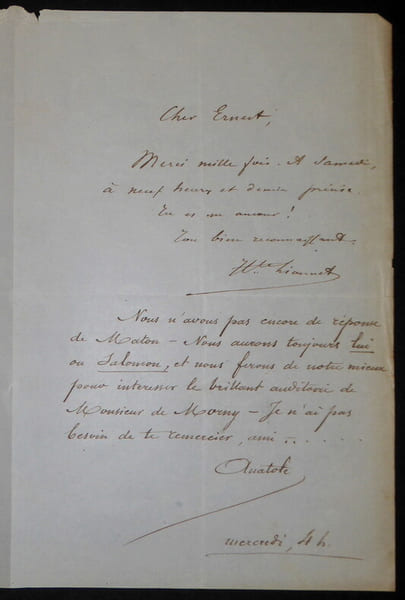 Cher Ernest,
Merci mille fois. A Samedi,
à neuf heures et demie précise.
Tu es un amour !
Ton bien reconnaissant.
Hte Lionnet
Nous n'avons pas encore de réponse
de Maton - Nous aurons toujours lui
ou Salomon, et nous ferons de notre mieux
pour interesser le brillant auditoire de
Monsieur de Morny - Je n'ai pas
besoin de te remercier, ami - . . . . .
Anatole
mercredi, 4 h.